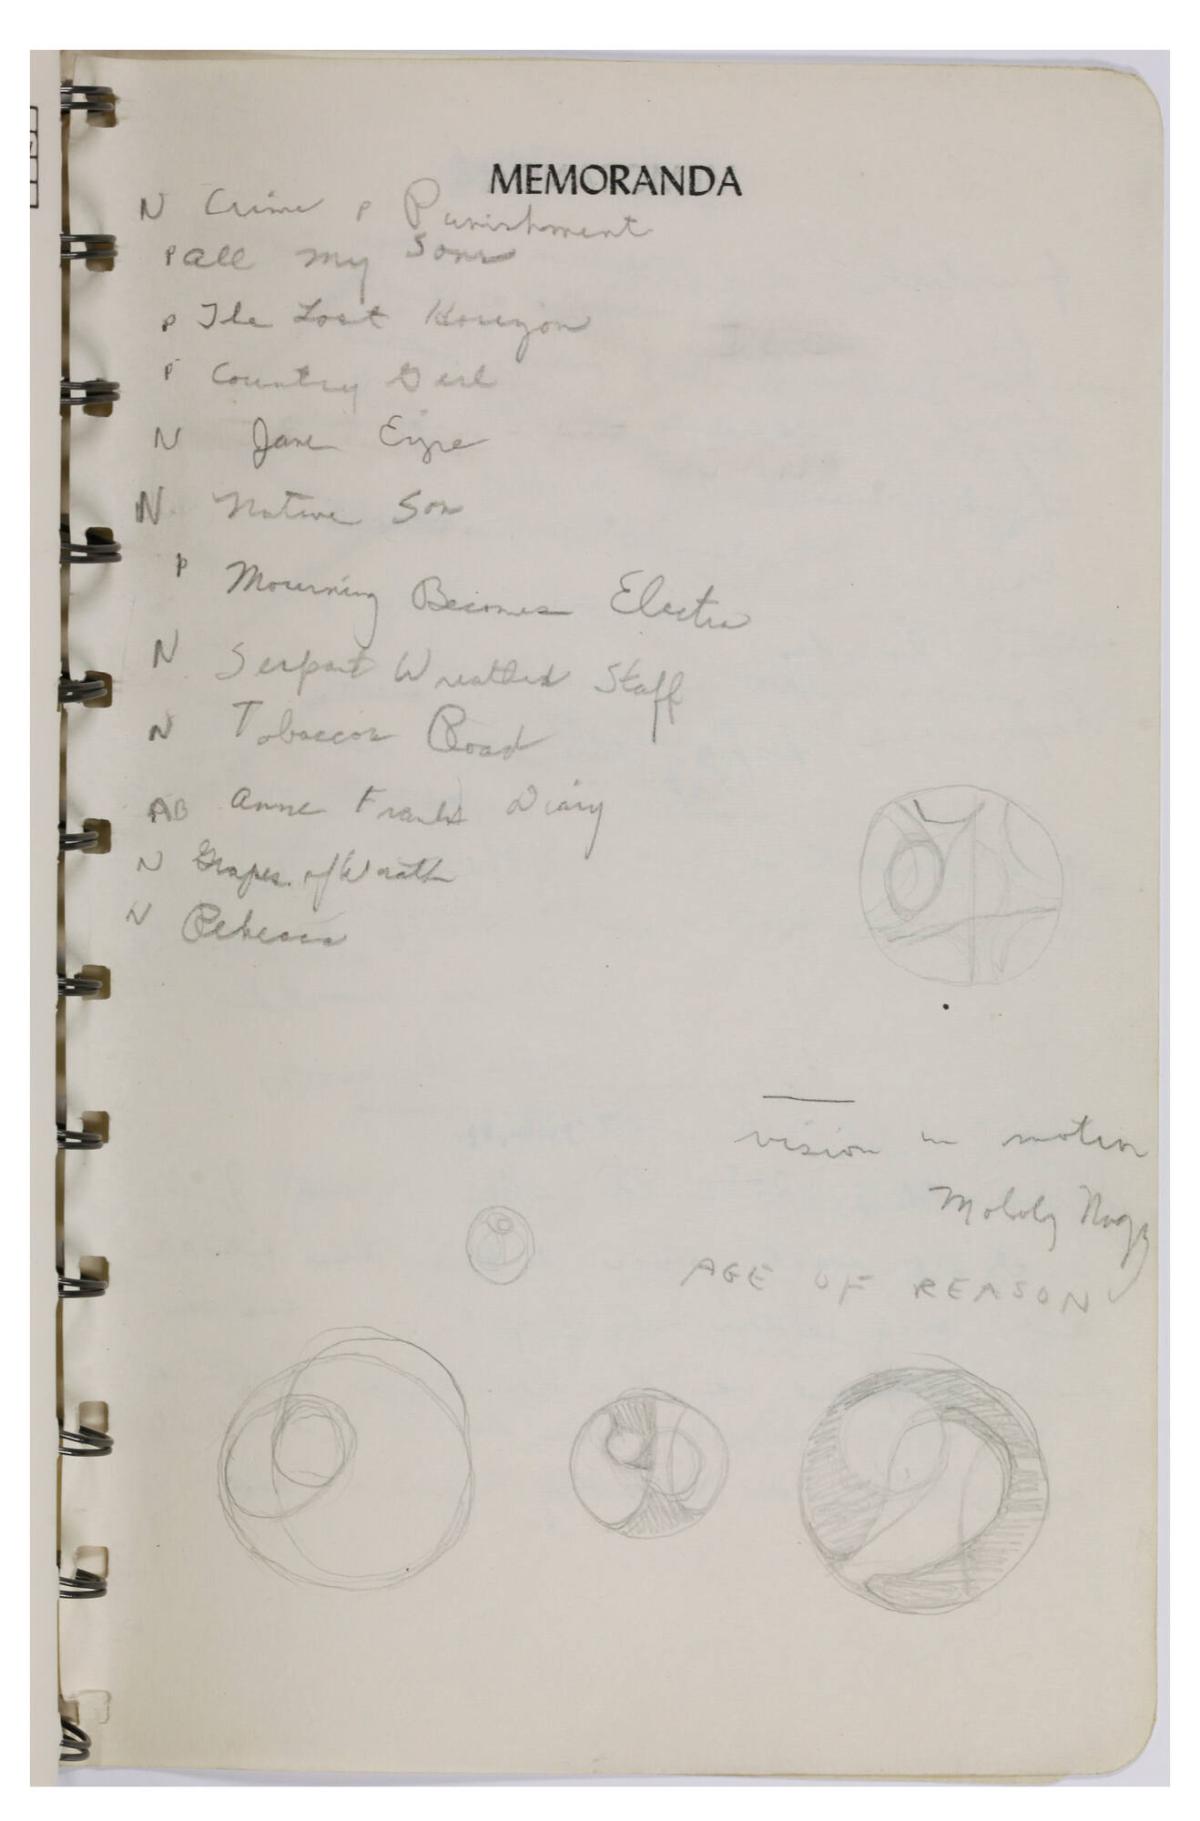 MEMORANDA
N Crime & Punishment
P All My Sons
P The Lost Horizon
P Country Girl
N Jane Eyre
N Native Son
P Mourning Becomes Electra
N Serpant Wreathed Staff
N Tobaccor Road
AB Anne Franks Diary
N Grapes of Wrath
N Rebecca
vision in motion
Moholy Nagy
AGE OF REASON